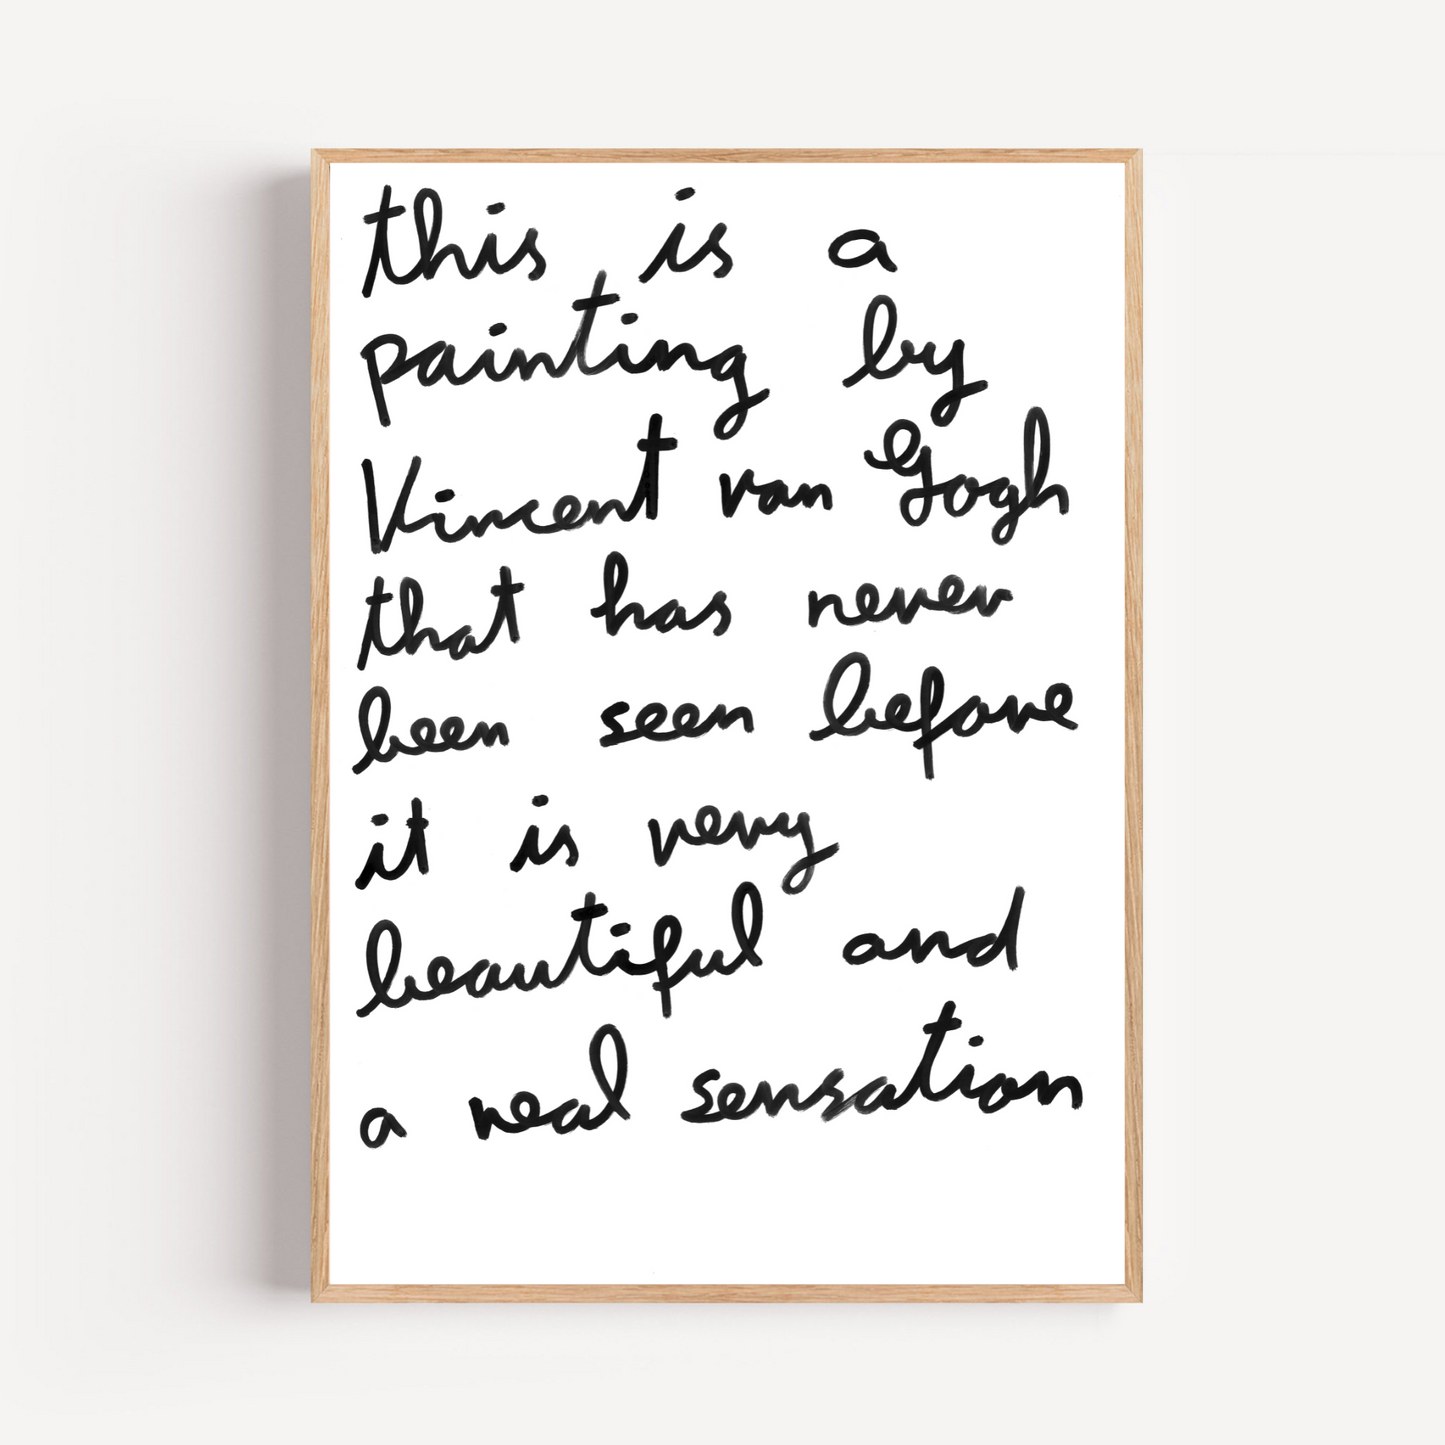 this is a
painting by
Vincent van Gogh
that has never
been seen before
it is very
beautiful and
a real sensation